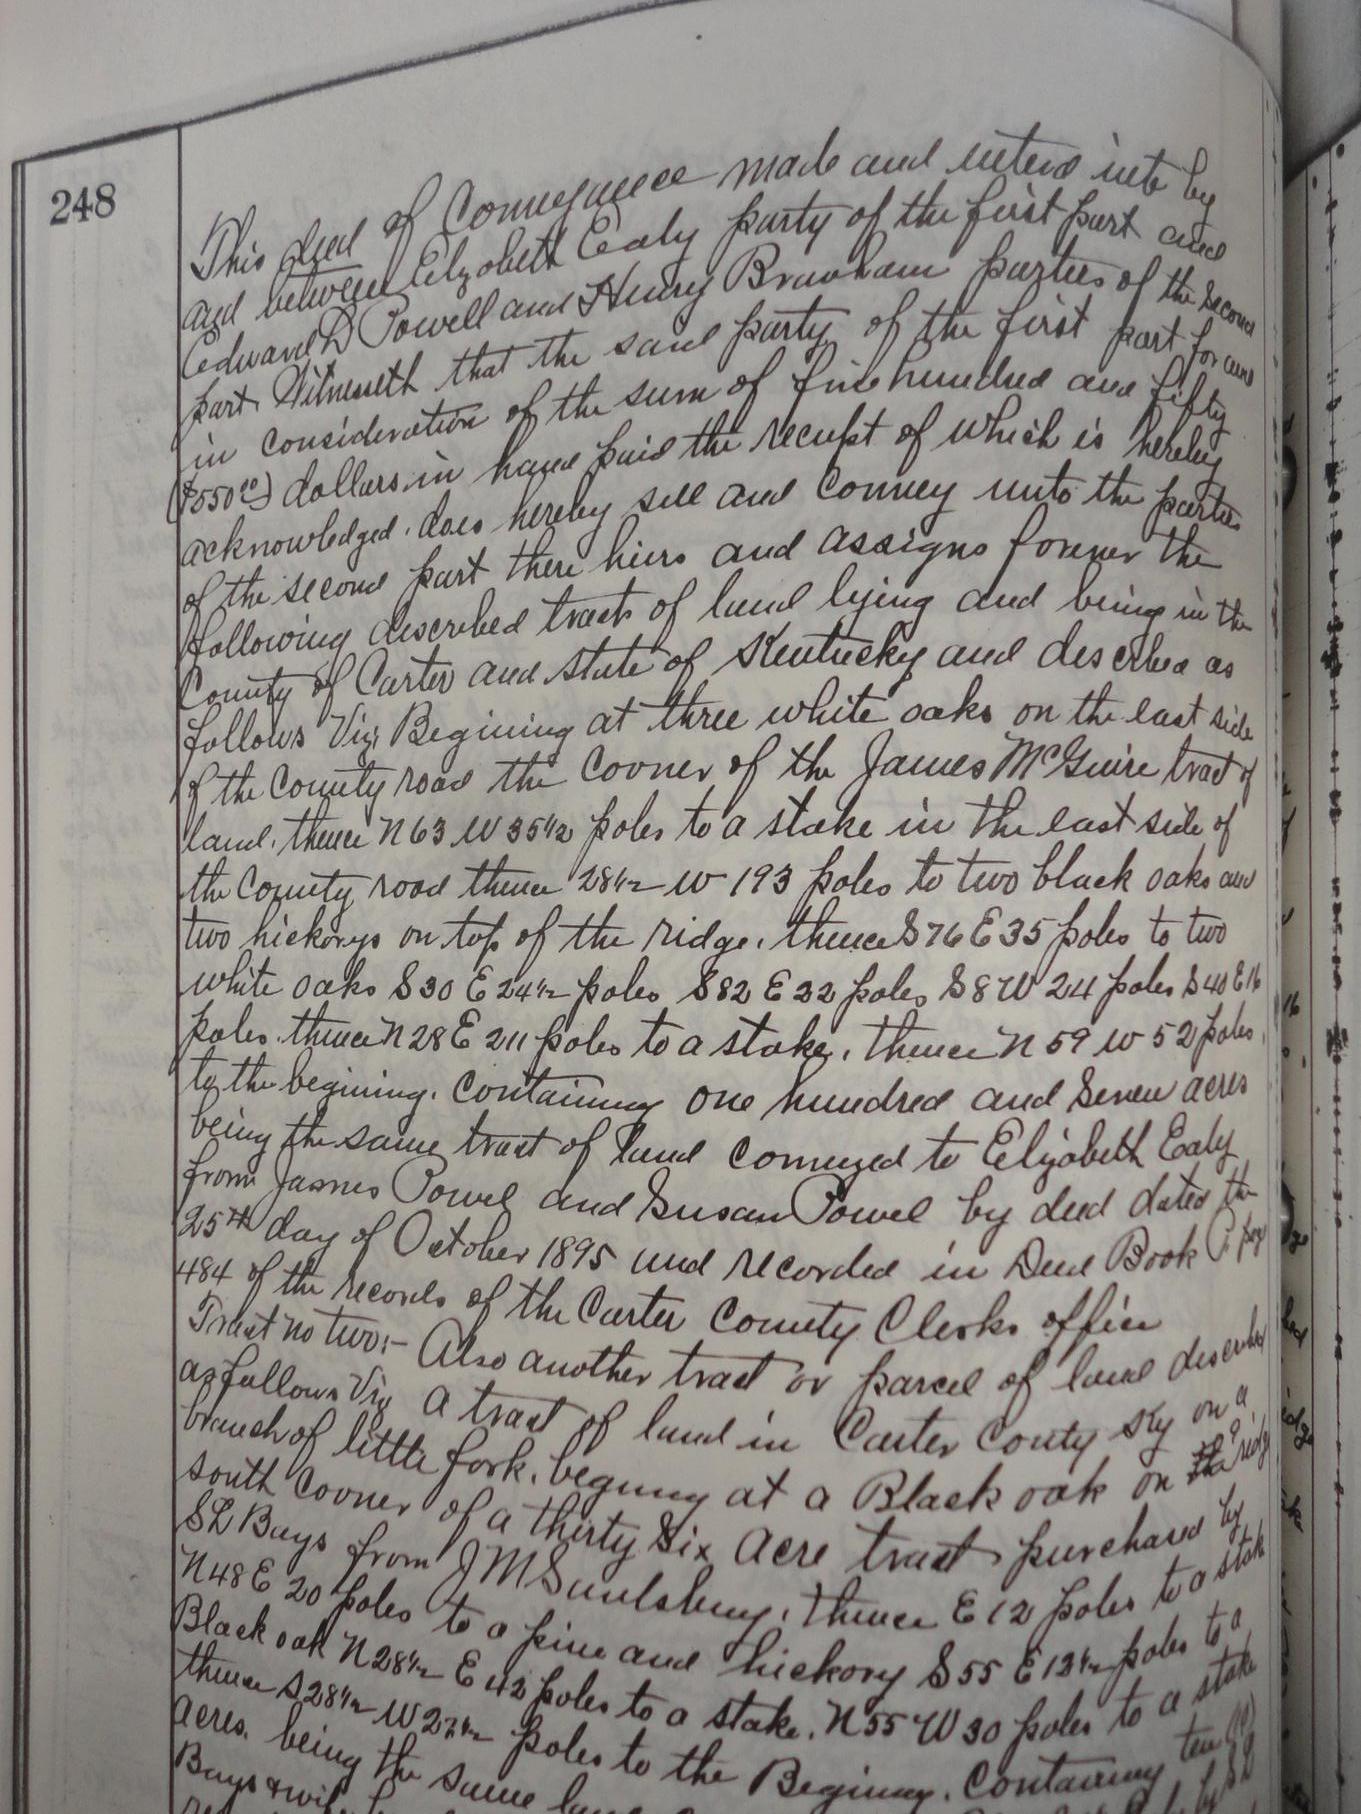 248
This deed of Conveyance made and enterd into by
and between Elizabeth Ealy party of the first part and
Edward D Powell and Henry Branham parties of the second
part. Witnesseth that the said party of the first part for and
in consideration of the sum of five hundred and fifty
($550.00) dollars in hand paid the receipt of which is hereby
acknowledged. does hereby sell and convey unto the parties
of the second part there hiers and assigns forever the
following described tracts of land lying and being in the
County of Carter and state of Kentucky and described as
follows Viz; Begining at three white oaks on the east side
of the County road the Corner of the James McGuire tract of
land. thence N 63 W 35 1/2 poles to a stake in the east side of
the County road thence 28 1/2 W 193 poles to two black oaks and
two hickorys on top of the ridge. thence S 76 E 35 poles to two
white oaks S 30 E 24 1/2 poles S 82 E 22 poles S 8 W 24 poles S 40 E 16
poles. thence N 28 E 211 poles to a stake. thence N 59 W 52 poles
to the begining. Containing one hundred and Seven acres
being the same tract of land conveyed to Elizabeth Ealy
from James Powel and Susan Powel by deed dated the
25th day of October 1895 and recorded in Deed Book
484 of the records of the Carter County Clerks office
Tract no two:- Also another tract or parcel of land described
as follows Viz A tract of land in Carter Conty Ky on a
branch of little fork. begining at a Black oak on the ridge
south Corner of a thirty Six Acre tract purchased by
SL Bays from J M Saulsbury. thence E 12 poles to a stake
N 48 E 20 poles to a pine and hickory S 55 E 12 1/2 poles to a
Black oak N 28 1/2 E 42 poles to a stake. N 55 W 30 poles to a stake
thence S 28 1/2 W poles to the Begining. Containing ten (10)
acres. being the same land by SL
Bays & wife